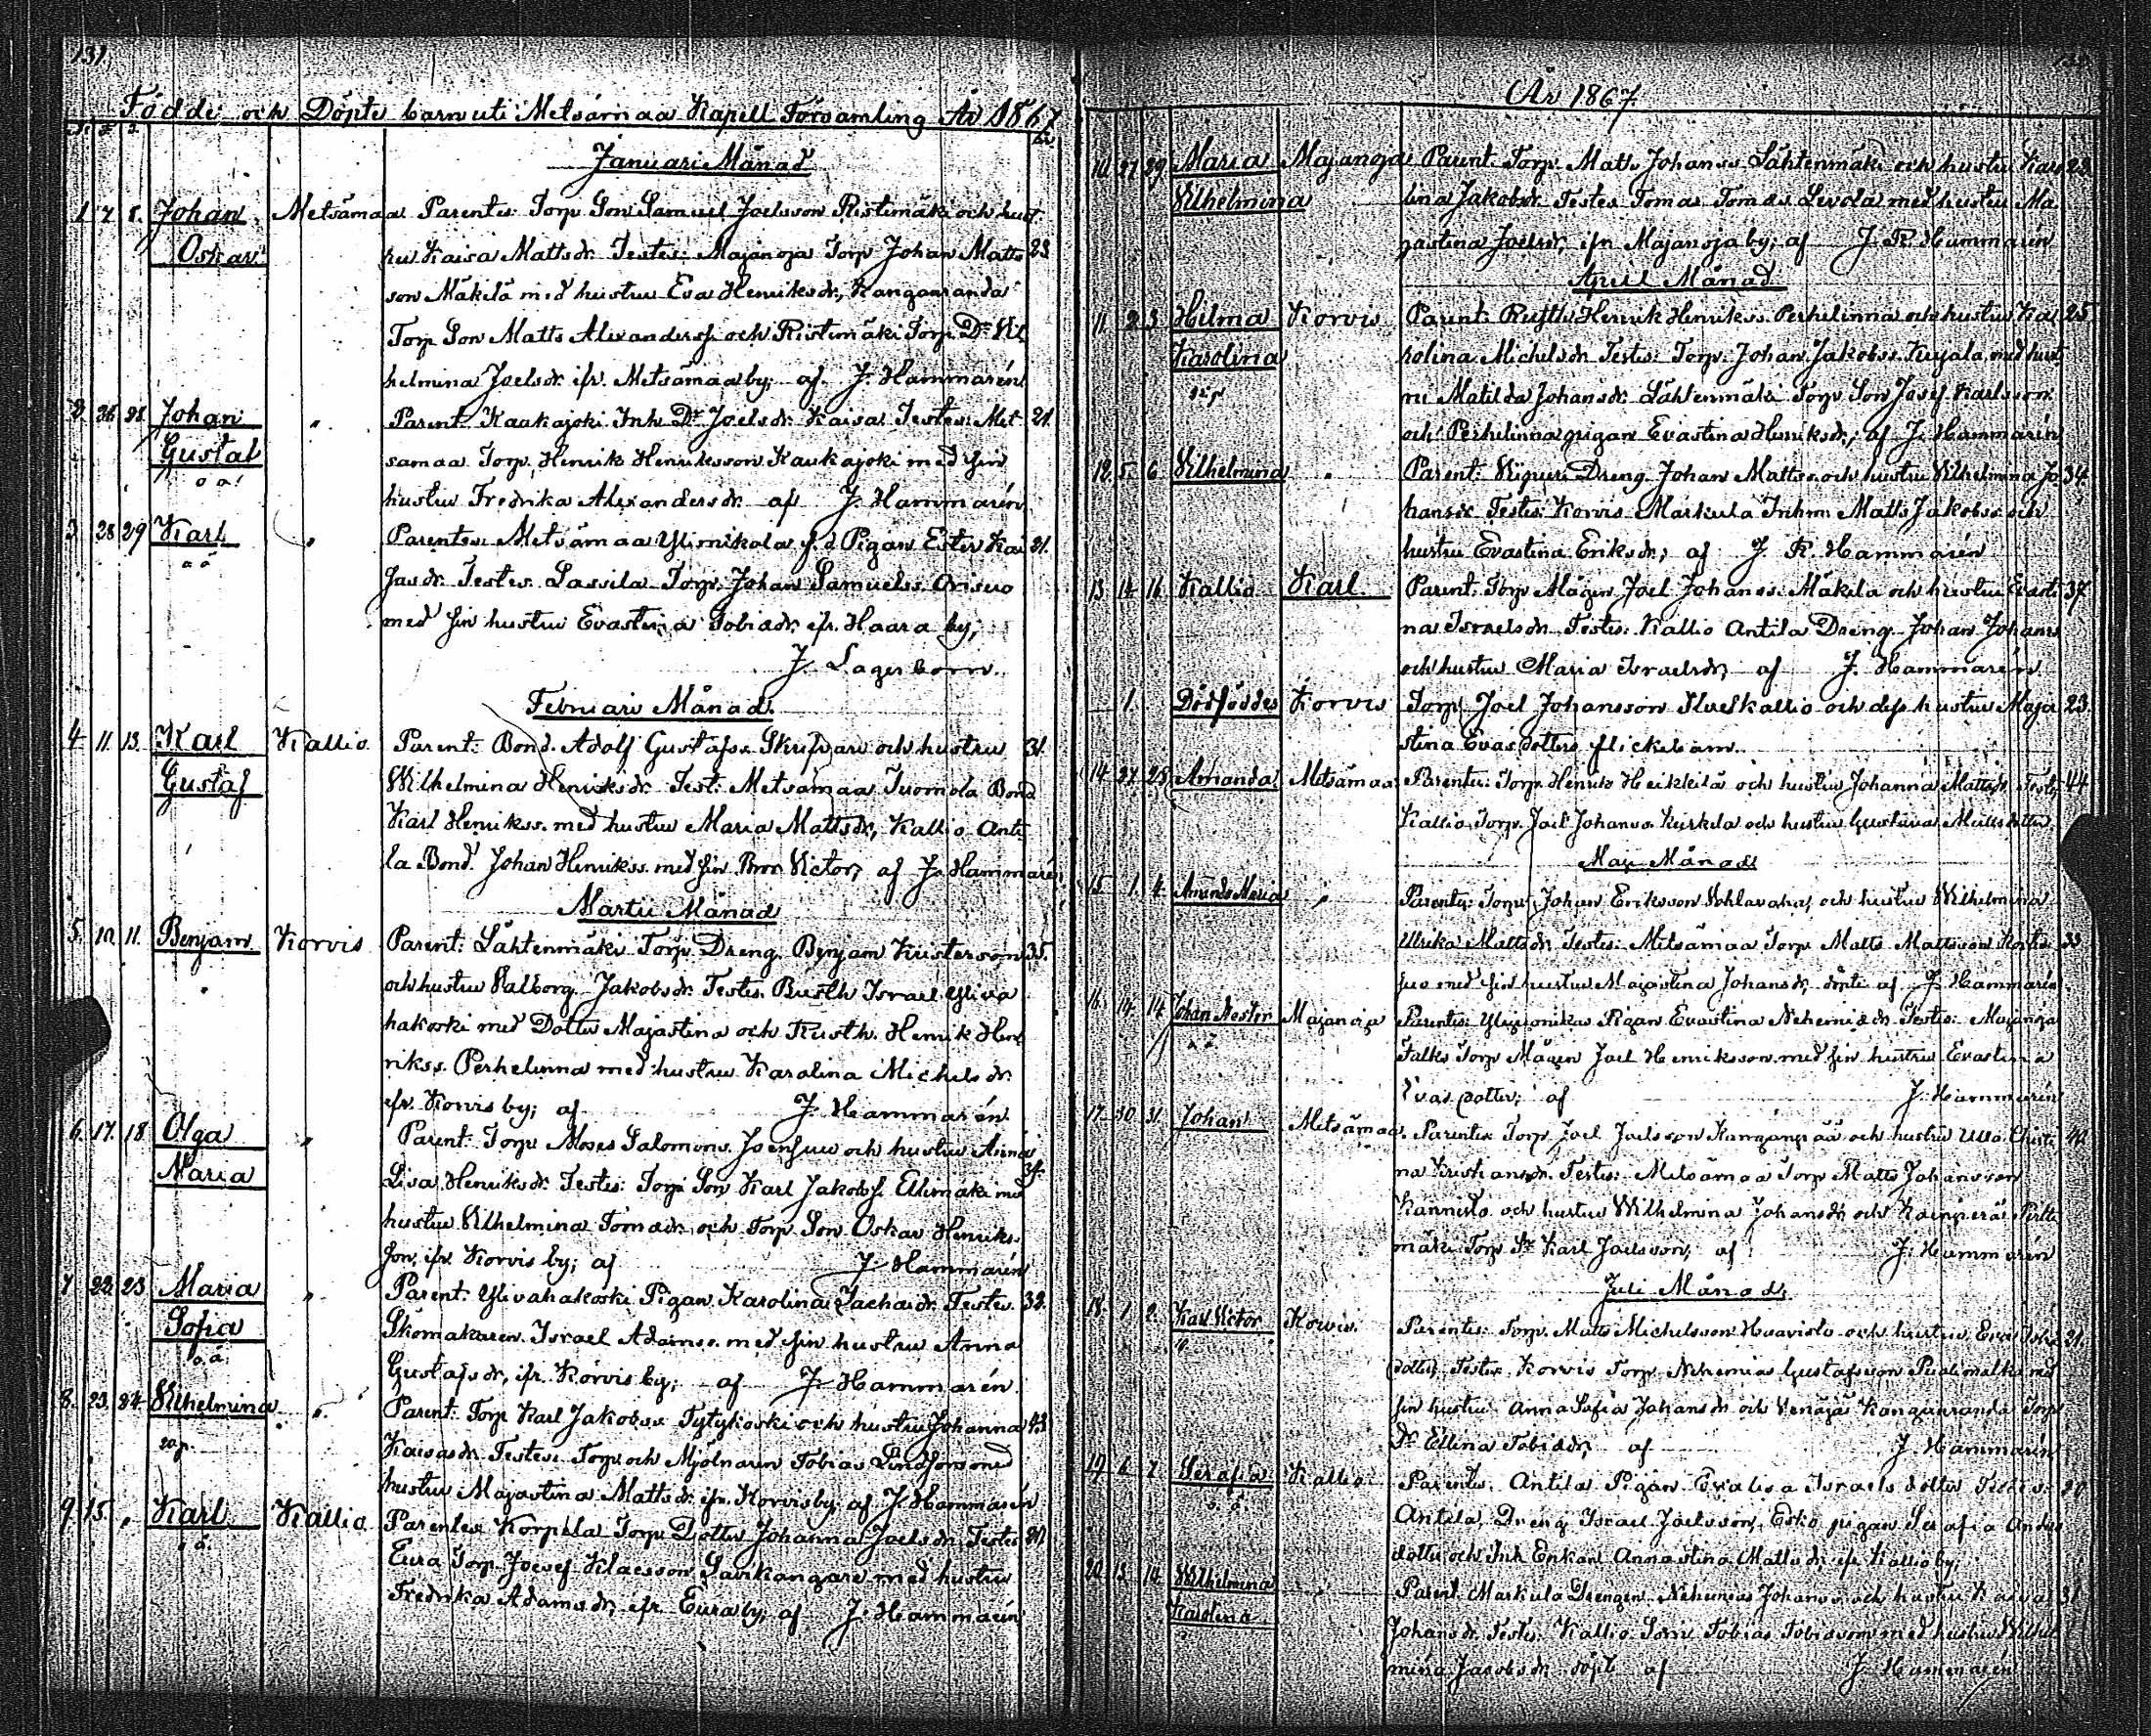 131.
Födde och Döpte barn uti Metsämaa Kapell Församling År 1867
Januari Månad
1. 7. 8. Johan Metsämaa Parentes: Torp. Son Samuel Joelsson Ristimäki och hust
Oskar ru Kaisa Mattsdr. Testes: Majanoja Torp Johan Matts 23
son Mäkilä med hustru Eva Henriksdr, Kangasranda
Torp Son Matts Alexanderss. och Ristimäki Torp. Dr Vil
helmina Joelsdr. ifr. Metsämaa by; af J. Hammarén
2. 26. 28. Johan " Parent. Kaukajoki Inh Dr Joelsdr. Kaisa Testes: Met 21.
Gustaf samaa Torp. Henrik Henriksson Kaukajoki med sin
o ä. hustru Fredrika Alexandersdr. af J. Hammarén
3. 28 29 Karl " Parentes: Metsämaa Ylinikola f.d. Pigan Ester Kai 21.
o ä sasdr. Testes. Lassila Torp. Johan Samuelss. Orisuo
med sin hustru Evastina Tobiadr. ifr. Haara by;
J. Lagerborn.
Februari Månad.
4. 11. 13. Karl Kallio Parent: Bond. Adolf Gustafss. Skrifvari och hustru 31.
Gustaf Wilhelmina Henriksdr. Test: Metsämaa Tuomola Bond
Karl Henrikss. med hustru Maria Mattsdr, Kallio Anti
la Bond. Johan Henrikss. med sin Bror Victor, af J. Hammarén
Martii Månad
5. 10. 11. Benjam. Korvis Parent: Lähtenmäki Torp Dreng. Benjam Kristersson 35.
och hustru Valborg Jakobsdr. Testes. Rusth. Israel Yliva
hakoski med Dotter Majastina och Rusth. Henrik Hen
rikss. Perhelinna med hustru Karolina Michelsdr.
ifr. Korvis by; af J. Hammarén
6. 17. 18 Olga " Parent: Torp Moses Salomons. Joensuu och hustru Anna
Maria Lisa Henriksdr. Testes: Torp Son Karl Jakobs. Ellimäki med
hustru Vilhelmina Tomadr. och Torp Son Oskar Henriks-
son, ifr. Korvis by; af J. Hammarén
7. 22. 23 Maria " Parent: Ylivahakoski Pigan Karolina Zachadr. Testes. 32.
Sofia Skomakaren Israel Adamss. med sin hustru Anna
o. ä. Gustafsdr, ifr. Korvis by; af J. Hammarén.
8. 23. 24 Vilhelmina " Parent: Torp Karl Jakobss. Tytykoski och hustru Johanna 43
Kaisasdr. Testes. Torp. och Mjölnaren Tobias Lindfors med
hustru Majastina Mattsdr. ifr. Korvis by; af J. Hammarén
9. 15. " Karl Kallio Parentes: Korpela Torp Dotter Johanna Joelsdr. Testes 20.
o ä. Eura Torp. Josef Klaesson Savikangare med hustru
Fredrika Adamsdr, ifr. Eura by; af J. Hammarén
År 1867
10. 27 29 Maria Majanoja Parent. Torp. Matts Johanss. Lähtenmäki och hustru Karo 23.
Vilhelmina lina Jakobsdr. Testes Tomas Tomass. Levola med hustru Ma
jastina Joelsdr, ifr Majanoja by; af J. R. Hammarén
April Månad.
11. 2. 3. Hilma Korvis Parent: Rusth. Henrik Henrikss. Perhelinna och hustru Ka 25
Karolina rolina Michelsdr. Testes: Torp. Johan Jakobss. Kujala med hust
ru Matilda Johansdr. Lähtenmäki Torp Son Josef Karlsson
och Perhelinna pigan Evastina Henriksdr.; af J. Hammarén
12. 5. 6 Vilhelmina " Parent: Dreng Johan Mattss. och hustru Vilhelmina Jo 34.
hansdr. Testes: Korvis Markula Inhm: Matts Jakobss. och
hustru Evastina Eriksdr.; af J. R. Hammarén
13. 14. 16. Kallio Karl. Parent: Torp Mågen Joel Johanss. Mäkelä och hustru Evasti 37
na Israelsdr. Testes: Kallio Antila Dreng Johan Johans
och hustru Maria Israelsdr; af J. Hammarén
1. Dödföddes Korvis Torp. Joel Johansson och dess hustru Maja 23.
stina Evasdotters flickebarn.
14. 27. 28. Amanda Metsämaa Parentes: Torp. Henrik Heikkilä och hustru Johanna Mattsdr. Test: 44
Kallio Torp. Joel Johanss. Kuskela och hustru Gustava Mattsdotter.
Maji Månad
15. 1. 4. Amanda Maria " Parentes: Torp. Johan Eriksson och hustru Wilhelmina
Ulrika Mattsdr. Testes: Metsämaa Torp Matts Mattsson 33
suo med sin hustru Majastina Johansdr, döpte af J. Hammarén
16. 14. 14 Johan Nestor Majanoja Parentes: Pigan Evastina Nehemiadr. Testes: Majanoja
o. ä. Falks Torp Mågen Joel Henriksson med sin hustru Evastina
Evas dotter; af J. Hammarén
17. 30. 31. Johan Metsämaa. Parentes Torp. Joel Joelsson Kangaspää och hustru Ulla Christi 42
na Kristiansdr. Testes: Metsämaa Torp Matts Johansson
Kannisto och hustru Wilhelmina Johansdr och Kainperä Pirtti
mäki Torp Sn Karl Joelsson; af J. Hammarén
Juli Månad.
18. 1. 2. Karl Victor Korvis. Parentes: Torp. Matts Michelsson Haavisto och hustru Eva 21.
dotter, Testes Korvis Torp. Nehemia Gustafsson med
sin hustru Anna Sofia Johansdr och Venäjä Kangasranda Torp
Dr Ellina Tobiadr; af J. Hammarén
19. 6. 7. Serafia Kallio Parentes. Antila Pigan Evalisa Israels dotter Testes: 20
o. ä. Antila Dreng Israel Joelsson, Erko pigan Serafia Anders
dotter och Inh Enkan Annastina Mattsdr, ifr Kallio by;
20. 13. 14. Wilhelmina " Parent. Markula Drengen Nehemias Johanss. och hustru Kaisa 31
Karolina Johansdr. Testes: Kallio Torp Tobias Tobiasson med hustru Wilhel
mina Jacobsdr. döpt af J. Hammarén